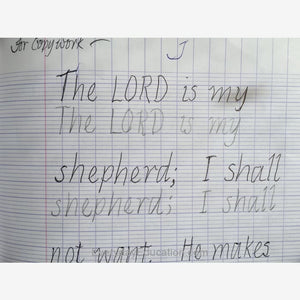 for Copywork —
J
The LORD is my
The LORD is my
shepherd; I shall
shepherd; I shall
not want. He makes